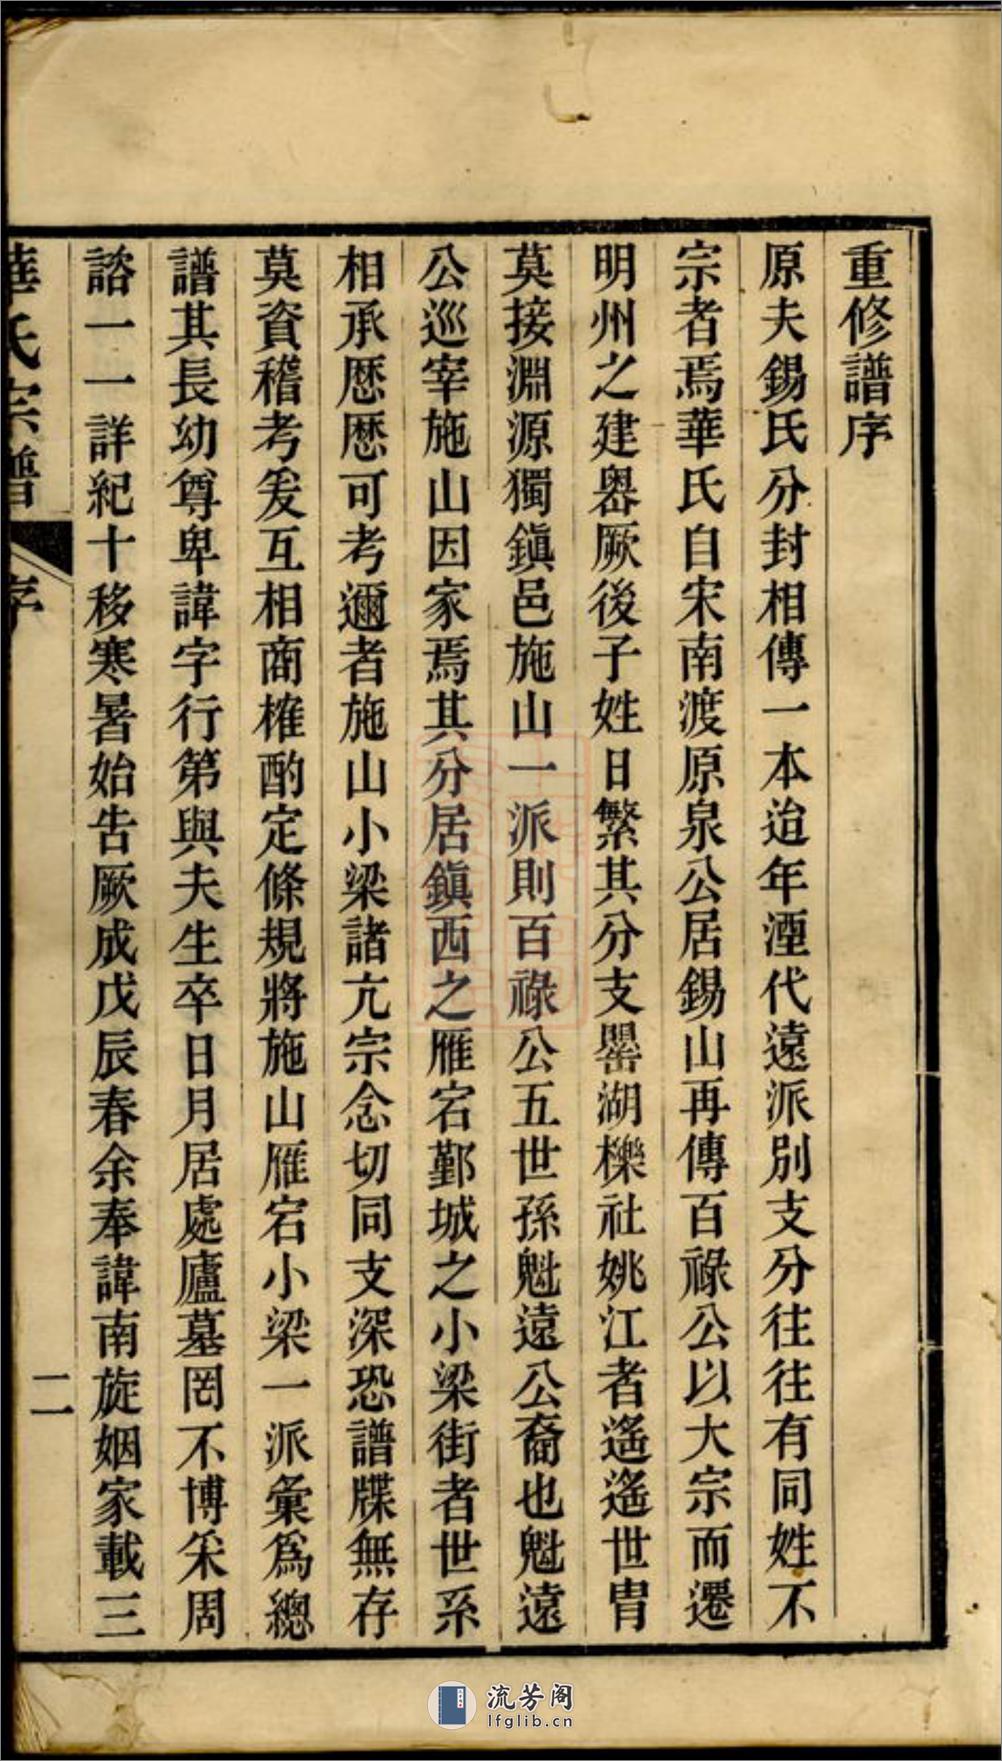 重修譜序
原夫錫氏分封相傳一本迨年湮代遠派別支分往往有同姓不
宗者焉華氏自宋南渡原泉公居錫山再傳百祿公以大宗而遷
明州之建嶴厥後子姓日繁其分支罌湖櫟社姚江者遙遙世胄
莫接淵源獨鎭邑施山一派則百祿公五世孫魁遠公裔也魁遠
公巡宰施山因家焉其分居鎭西之雁宕鄞城之小梁街者世系
相承歷歷可考邇者施山小梁諸亢宗念切同支深恐譜牒無存
莫資稽考爰互相商榷酌定條規將施山雁宕小梁一派彙爲總
譜其長幼尊卑諱字行第與夫生卒日月居處廬墓罔不博采周
諮一一詳紀十移寒暑始告厥成戊辰春余奉諱南旋姻家載三
華氏宗譜 序 二
流芳阁
lfglib.cn